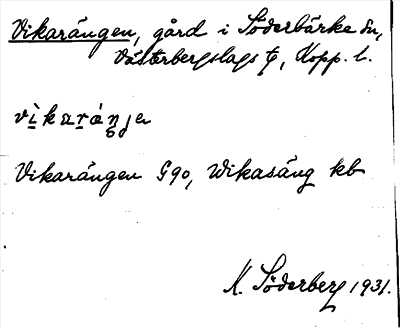 Vikarängen, gård i Söderbärke sn,
Västerbergslags tg, Kopp. l.
vìkaráŋən
Vikarängen G90, Wikasäng kb
K. Söderberg 1931.